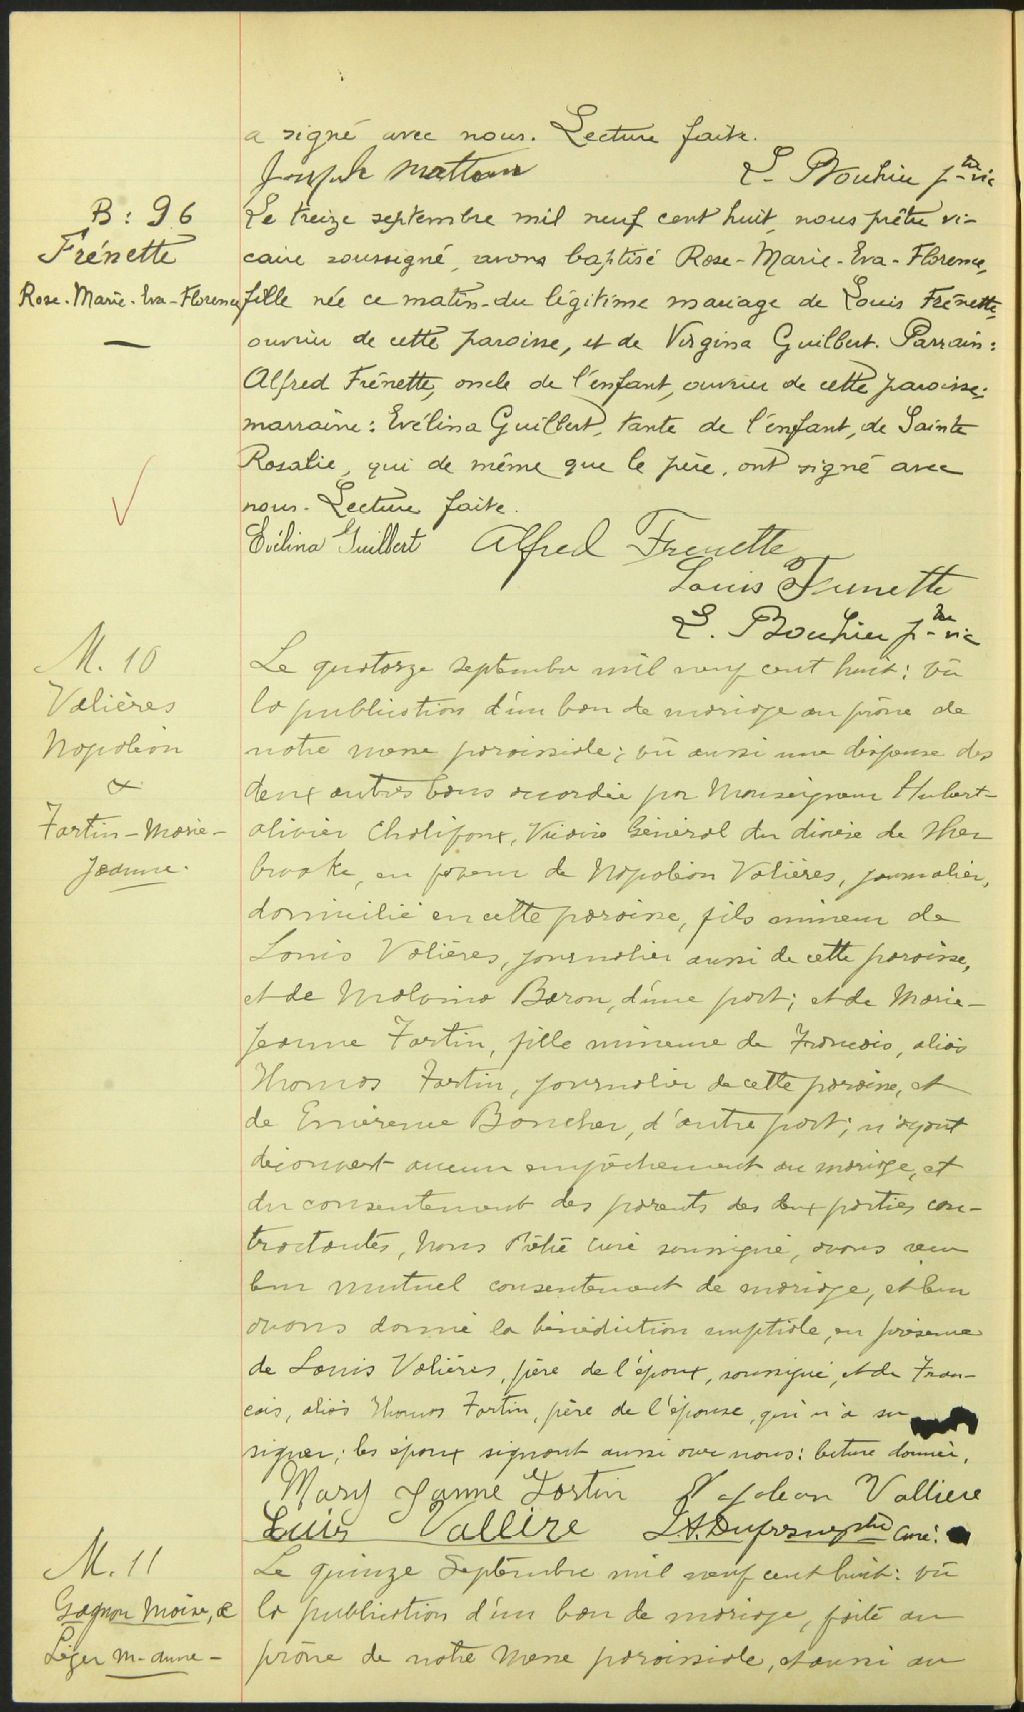 a signé avec nous. Lecture faite.
Joseph Mattin
L. Bouhier ptre vic
B: 96
Frénette
Rose-Marie-Eva-Florence
Le treize septembre mil neuf cent huit, nous prêtre vi-
caire soussigné, avons baptisé Rose-Marie-Eva-Florence,
fille née ce matin du légitime mariage de Louis Frénette,
ouvrier de cette paroisse, et de Virgina Guilbert. Parrain:
Alfred Frénette, oncle de l'enfant, ouvrier de cette paroisse;
marraine: Evélina Guilbert, tante de l'enfant, de Sainte
Rosalie, qui de même que le père, ont signé avec
nous. Lecture faite.
Evélina Guilbert Alfred Frenette
Louis Frenette
L. Bouhier ptre vic
M. 10
Valières
Napoléon
&
Fortin-Marie-
Jeanne.
Le quatorze Septembre mil neuf cent huit: vû
la publication d'un ban de mariage au prône de
notre messe paroissiale; vû aussi une dispense des
deux autres bans accordée par Monseigneur Hubert-
olivier Chalifoux, Vicaire Général du diocèse de Sher
brooke, en faveur de Napoléon Valières, journalier,
domicilié en cette paroisse, fils mineur de
Louis Valières, journalier aussi de cette paroisse,
et de Malvina Baron, d'une part; et de Marie-
Jeanne Fortin, fille mineure de Francois, alias
Thomas Fortin, journalier de cette paroisse, et
de Emérence Boucher, d'autre part; n'ayant
découvert aucun empêchement au mariage, et
du consentement des parents des deux parties con-
tractantes, Nous Prêtre Curé soussigné, avons reçu
leur mutuel consentement de mariage, et leur
avons donné la bénédiction nuptiale, en présence
de Louis Valières, père de l'époux, soussigné, et de Fran-
cois, alias Thomas Fortin, père de l'épouse, qui n'a su
signer; les époux signant aussi avec nous: lecture donnée.
Mary Janne Fortin Napolean Valliere
Luis Vallire J.A. Dufresne ptre Curé.
M. 11
Gagnon Moïse, &
Léger M-anne-
Le quinze Septembre mil neuf cent huit: vû
la publication d'un ban de mariage, faite au
prône de notre messe paroissiale, et aussi au